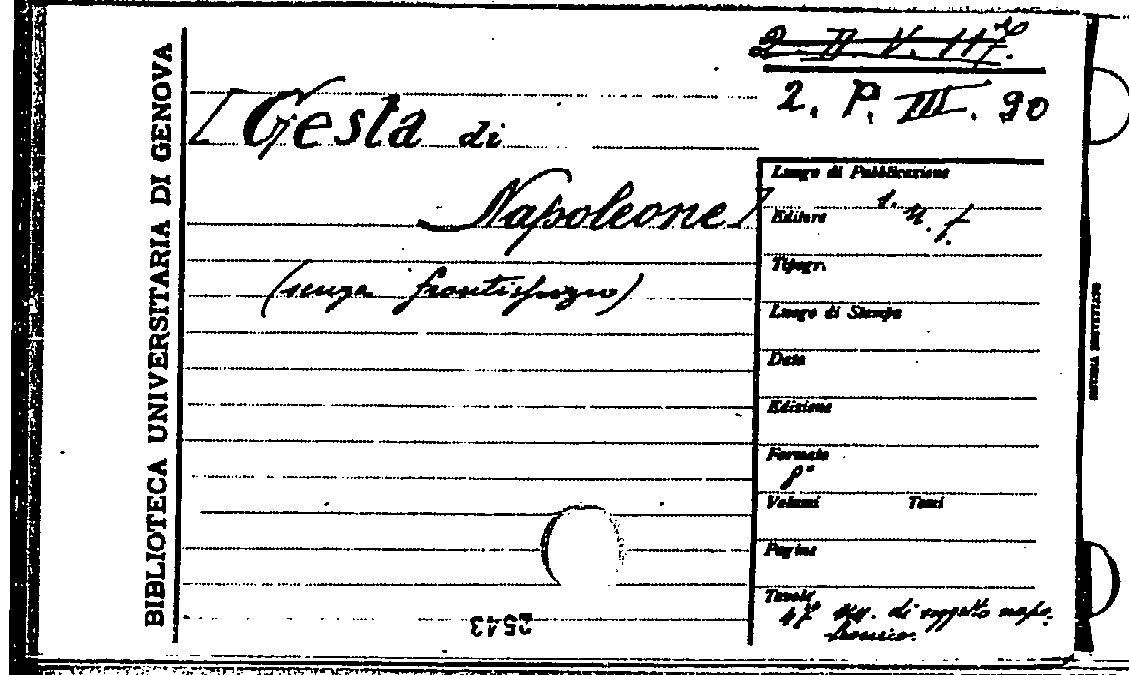 BIBLIOTECA UNIVERSITARIA DI GENOVA
2. P. III. 90
[Gesta di
Napoleone]
(senza frontispizio)
Luogo di Pubblicazione
Editore
s. n. t.
Tipogr.
Luogo di Stampa
Data
Edizione
Formato
8°
Volumi Tomi
Pagine
Tavole
47 di soggetto napo-
leonico.
2543